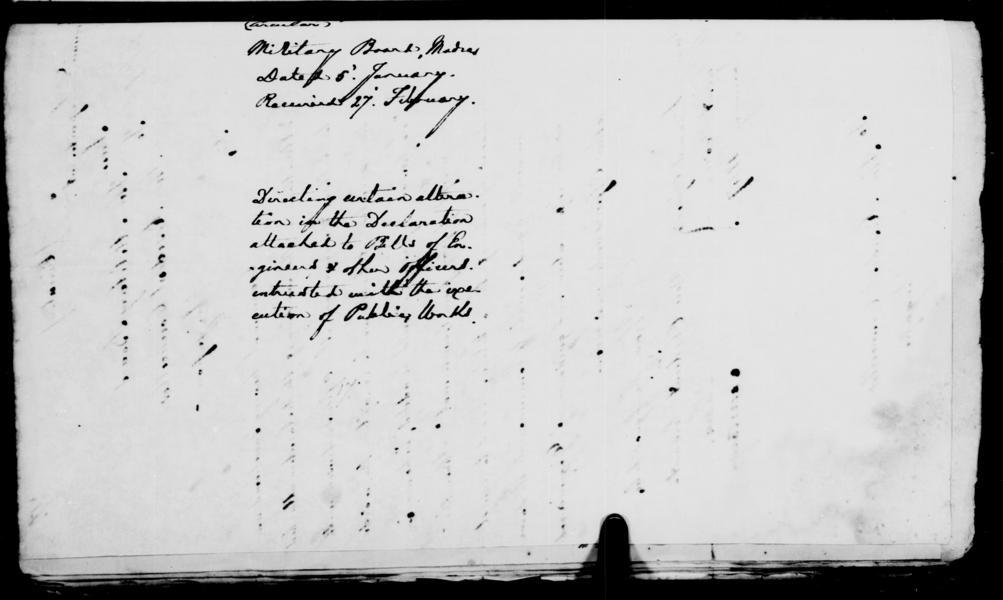 (Circular)
Military Board, Madras
Dated 5th January.
Received 27th February.
Directing certain altera-
tion in the Declaration
attached to Bills of En-
-gineers & other officers
entrusted with the exe-
cution of Public Works.